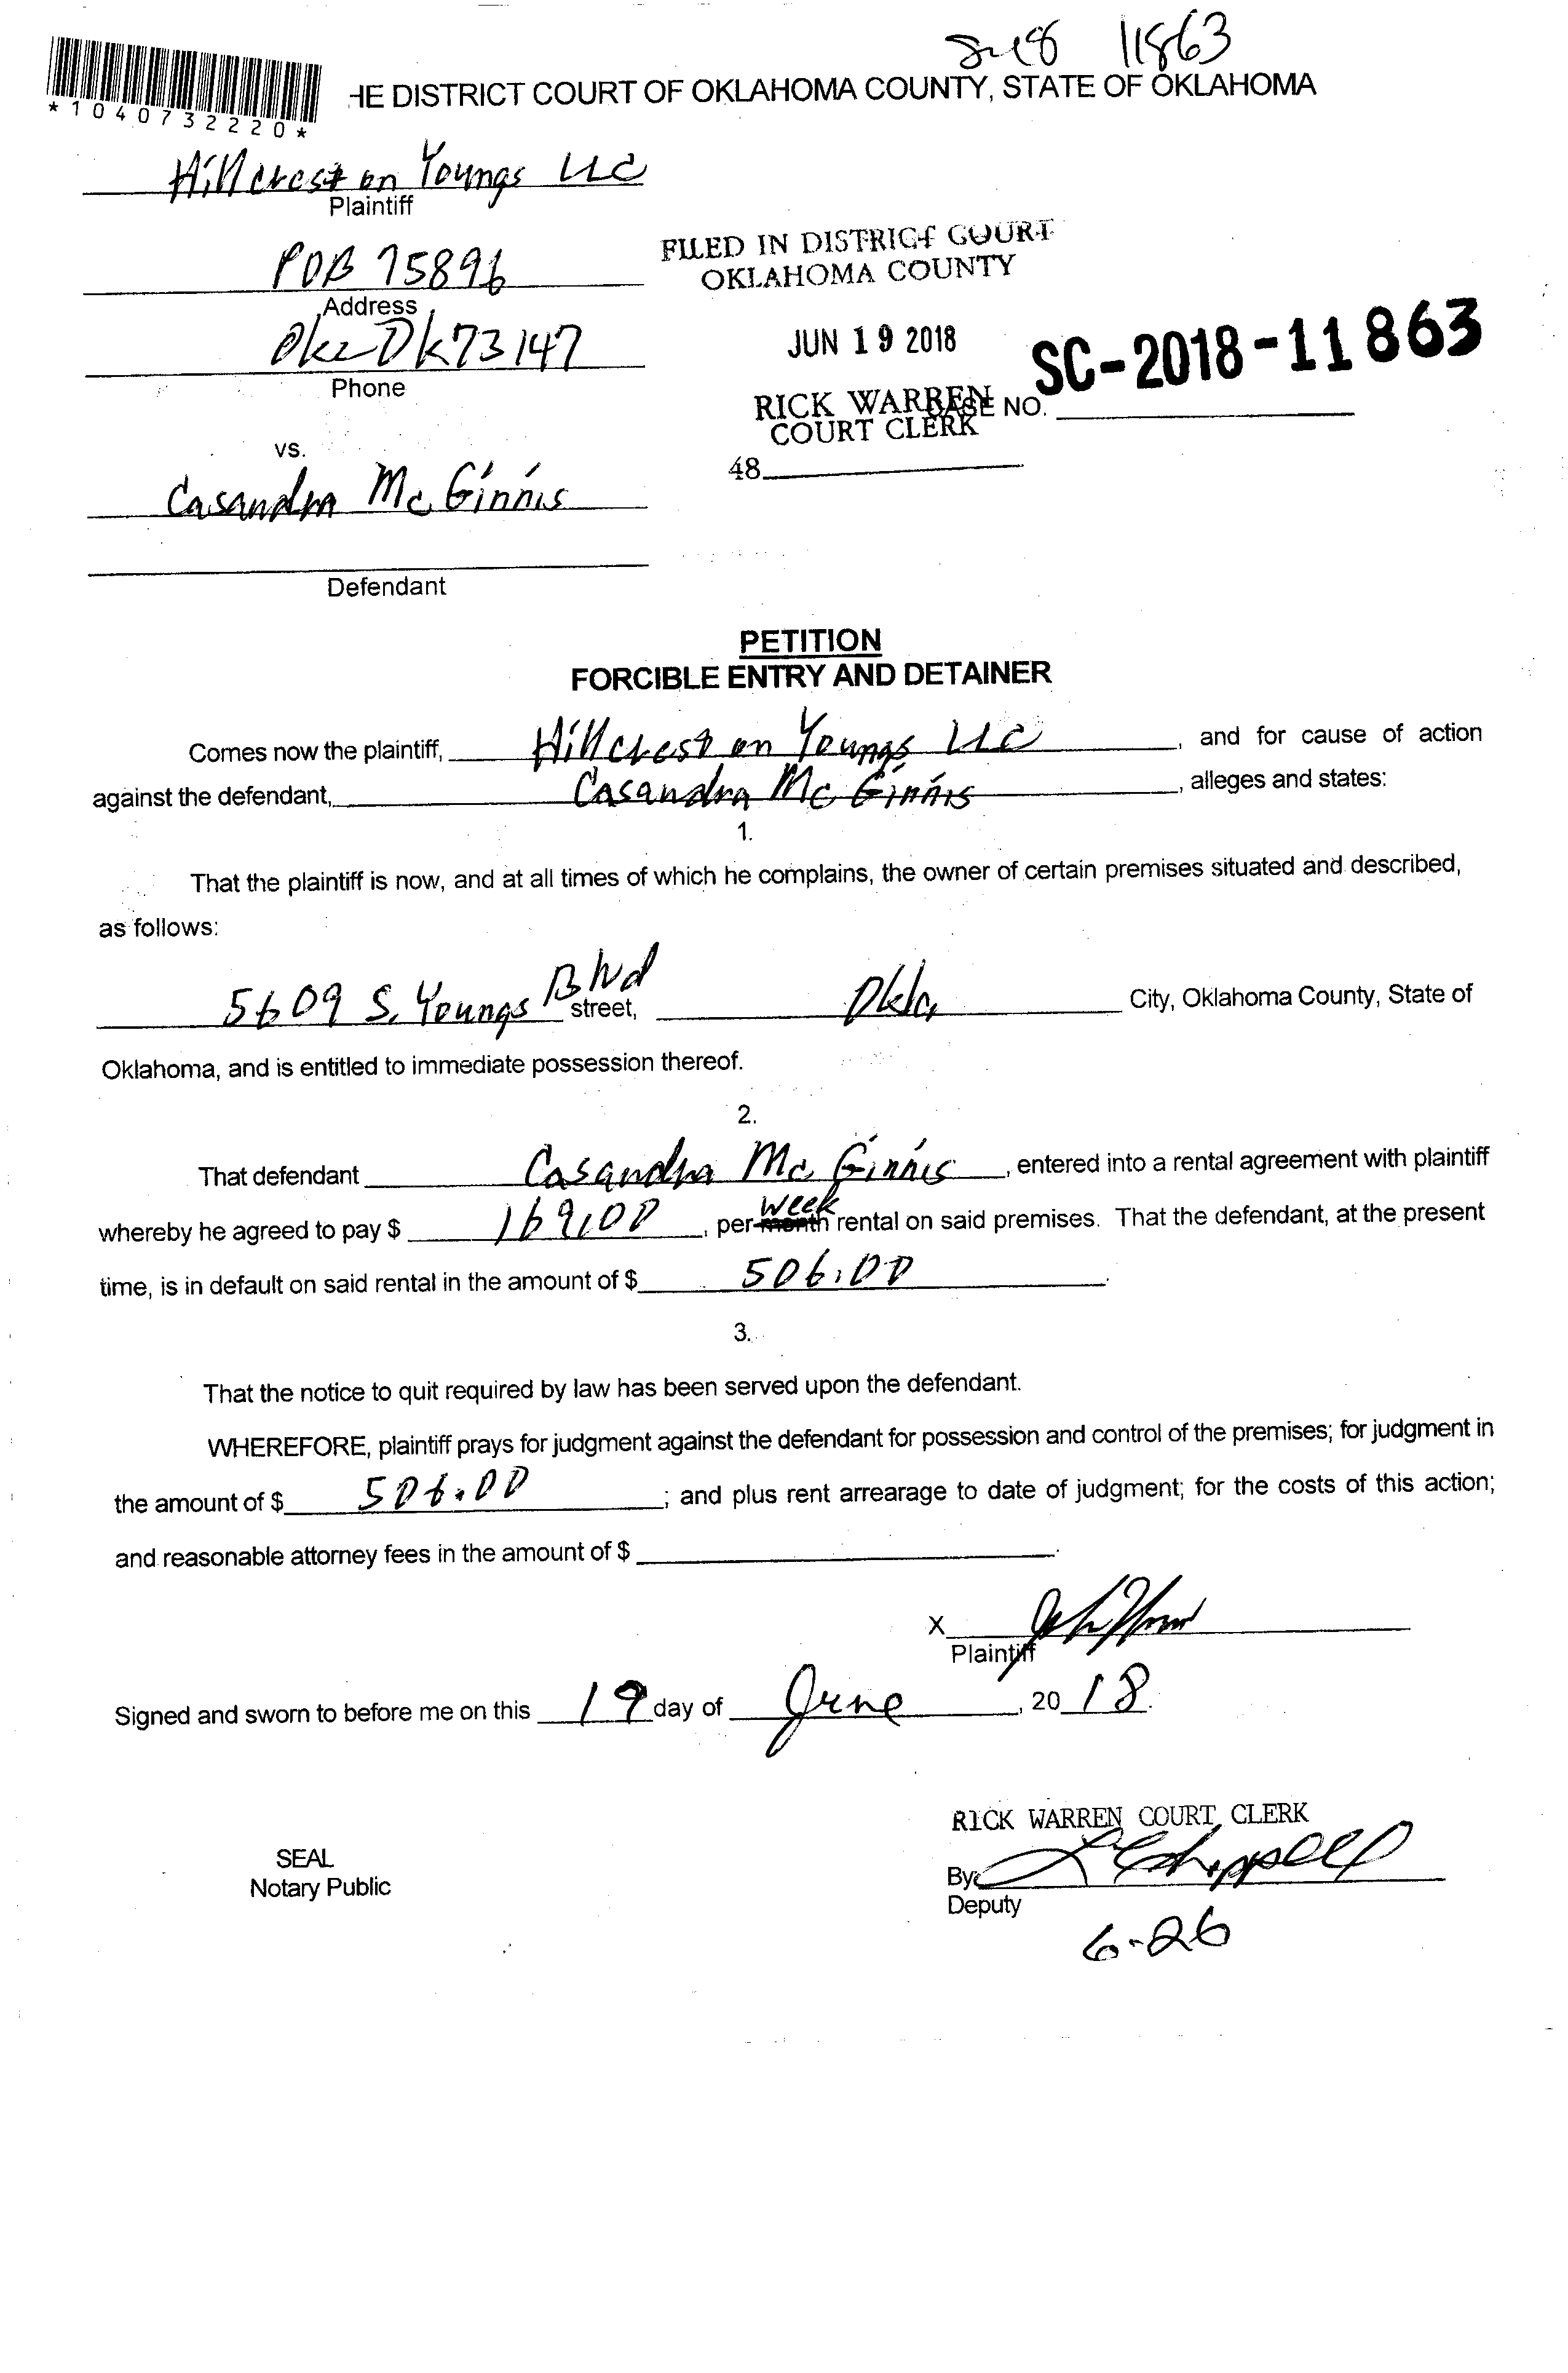 S-18 11863
HE DISTRICT COURT OF OKLAHOMA COUNTY, STATE OF OKLAHOMA
*1040732220*
Hillcrest on Youngs LLC
Plaintiff
POB 75896
Address
Okc Ok 73147
Phone
FILED IN DISTRICT COURT
OKLAHOMA COUNTY
JUN 19 2018
SC-2018-11863
RICK WARREN
COURT CLERK
CASE NO.
48
vs.
Casandra McGinnis
Defendant
PETITION
FORCIBLE ENTRY AND DETAINER
Comes now the plaintiff, Hillcrest on Youngs LLC, and for cause of action
against the defendant, Casandra McGinnis, alleges and states:
1.
That the plaintiff is now, and at all times of which he complains, the owner of certain premises situated and described,
as follows:
5609 S. Youngs Blvd street, Okla, City, Oklahoma County, State of
Oklahoma, and is entitled to immediate possession thereof.
2.
That defendant Casandra McGinnis, entered into a rental agreement with plaintiff
whereby he agreed to pay $ 169.00, per month week rental on said premises. That the defendant, at the present
time, is in default on said rental in the amount of $ 506.00.
3.
That the notice to quit required by law has been served upon the defendant.
WHEREFORE, plaintiff prays for judgment against the defendant for possession and control of the premises; for judgment in
the amount of $ 506.00; and plus rent arrearage to date of judgment; for the costs of this action;
and reasonable attorney fees in the amount of $ .
X
Plaintiff
Signed and sworn to before me on this 19 day of June, 2018.
RICK WARREN COURT CLERK
SEAL
Notary Public
By:
Deputy
6-26